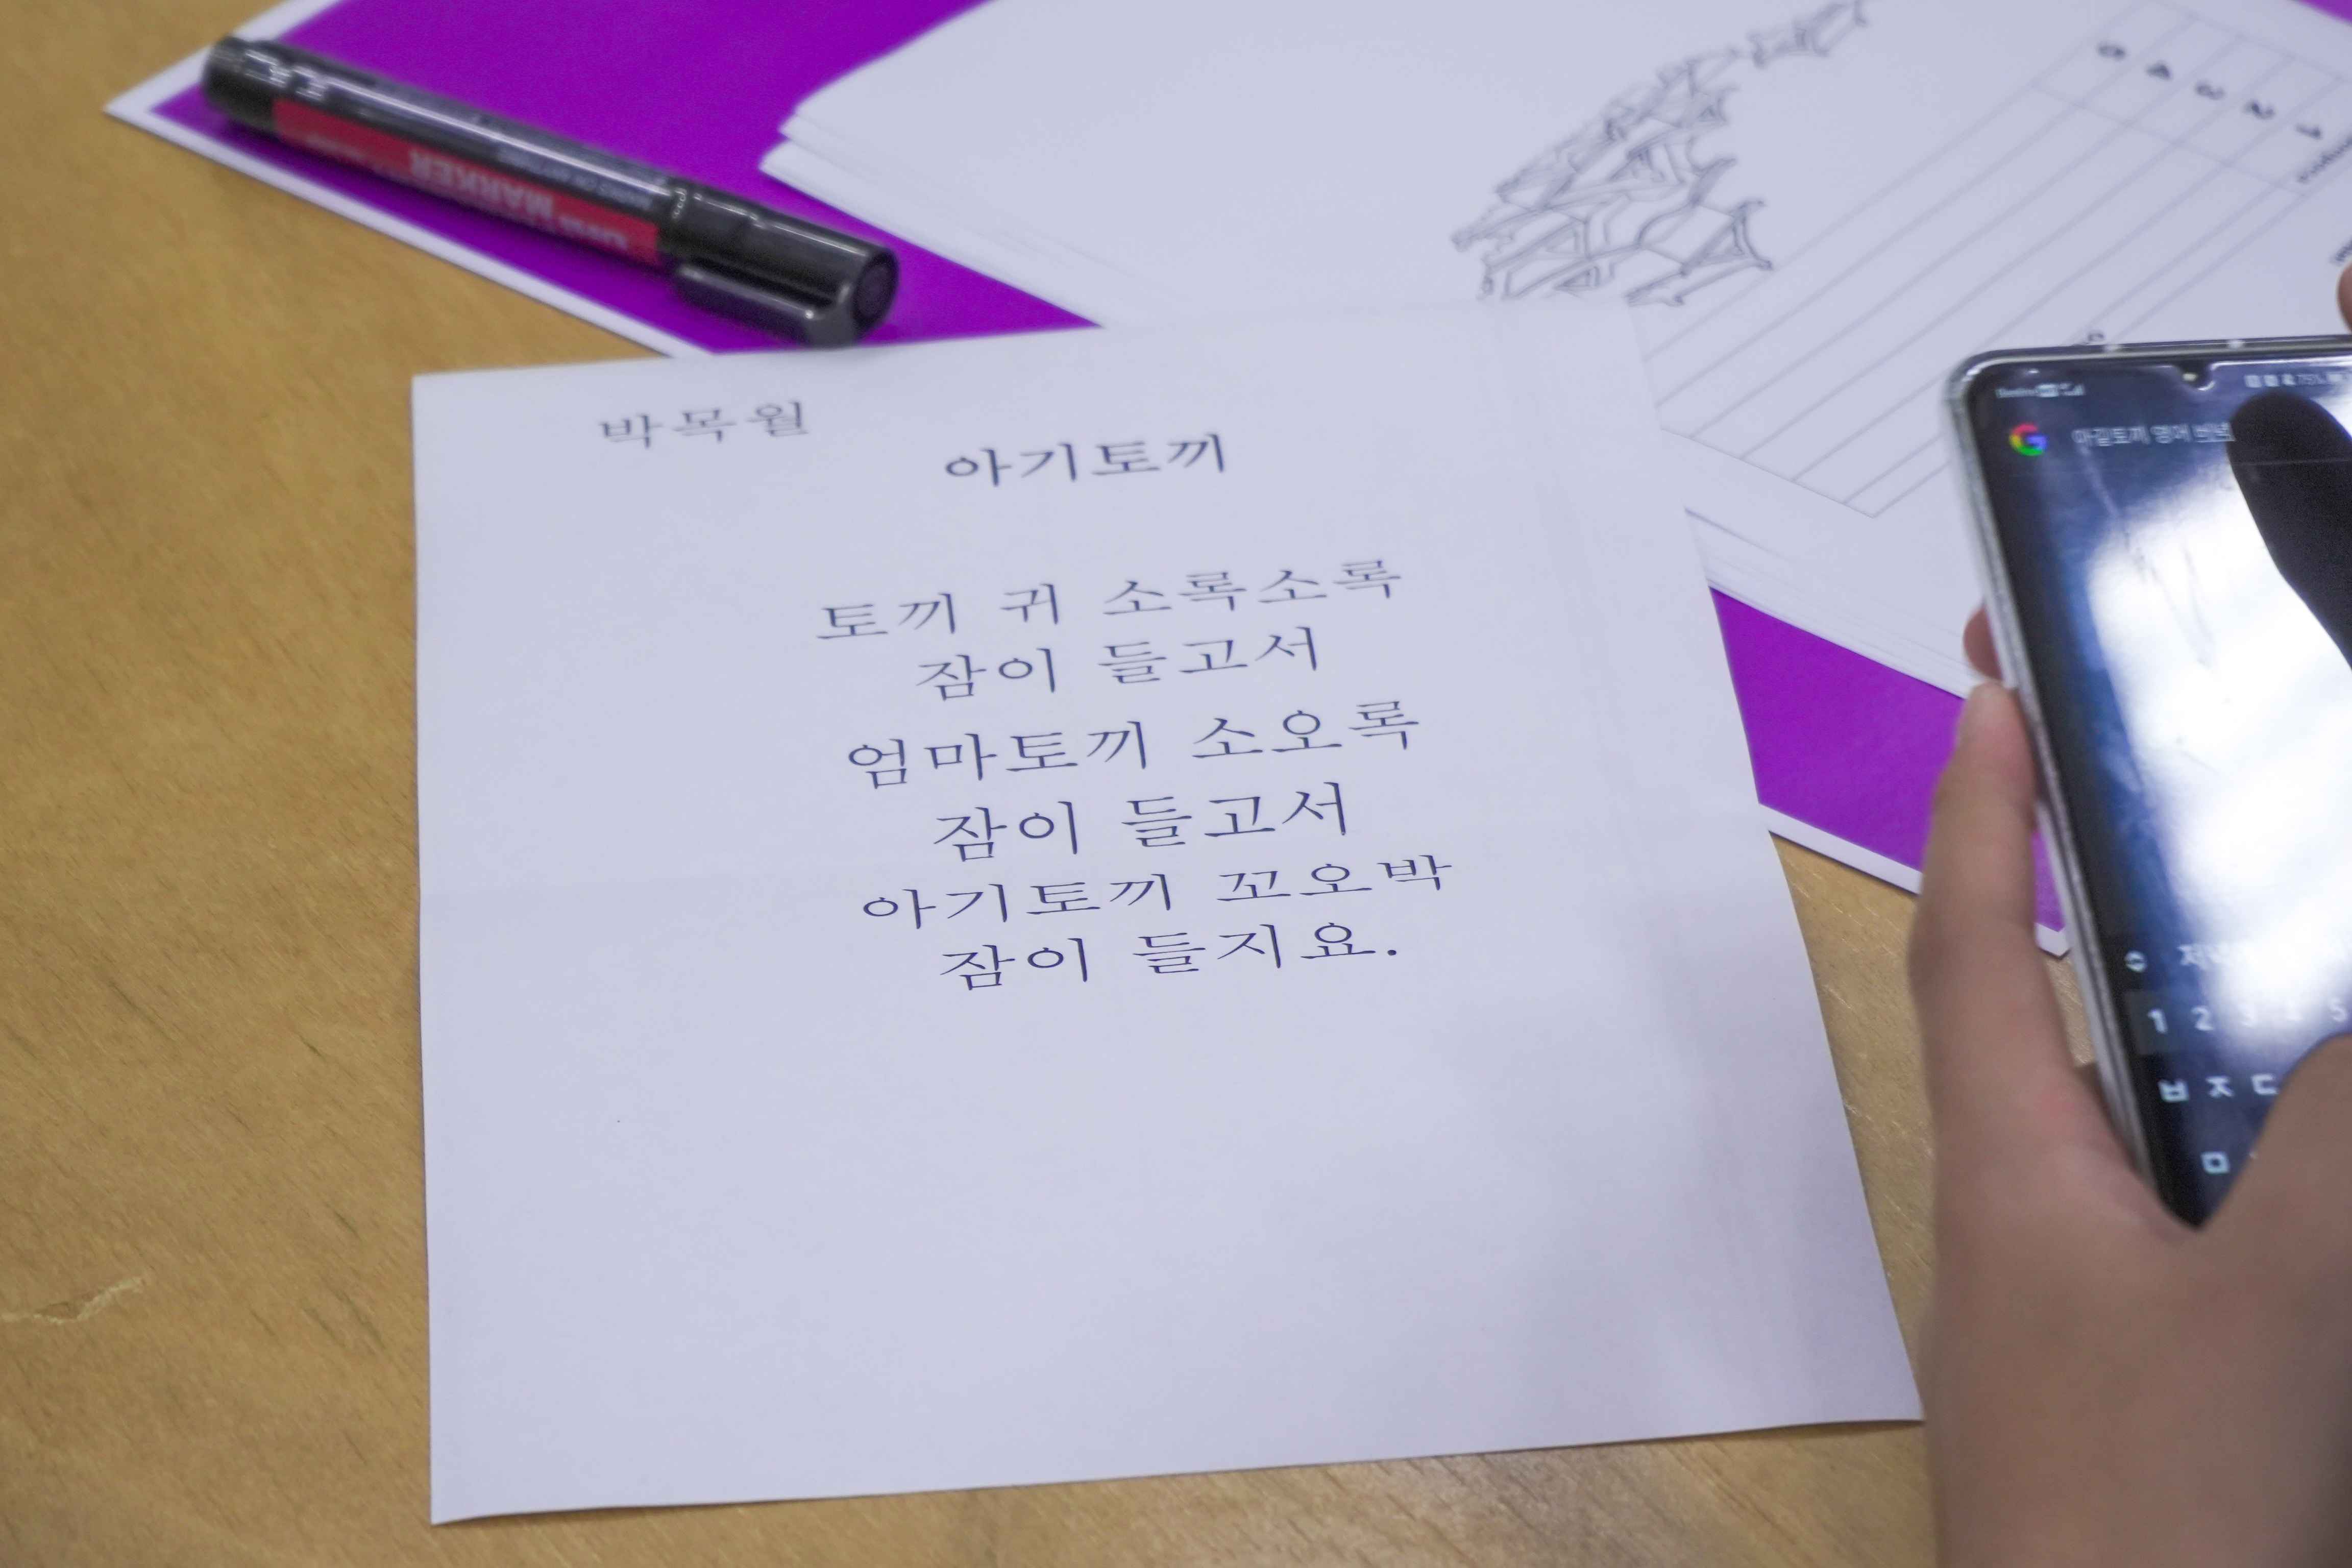 박목월
아기토끼
토끼 귀 소록소록
잠이 들고서
엄마토끼 소오록
잠이 들고서
아기토끼 꼬오박
잠이 들지요.
MARKER
1
2
3
4
5
1 2 3 4 5
ㅂ ㅈ ㄷ
ㅁ